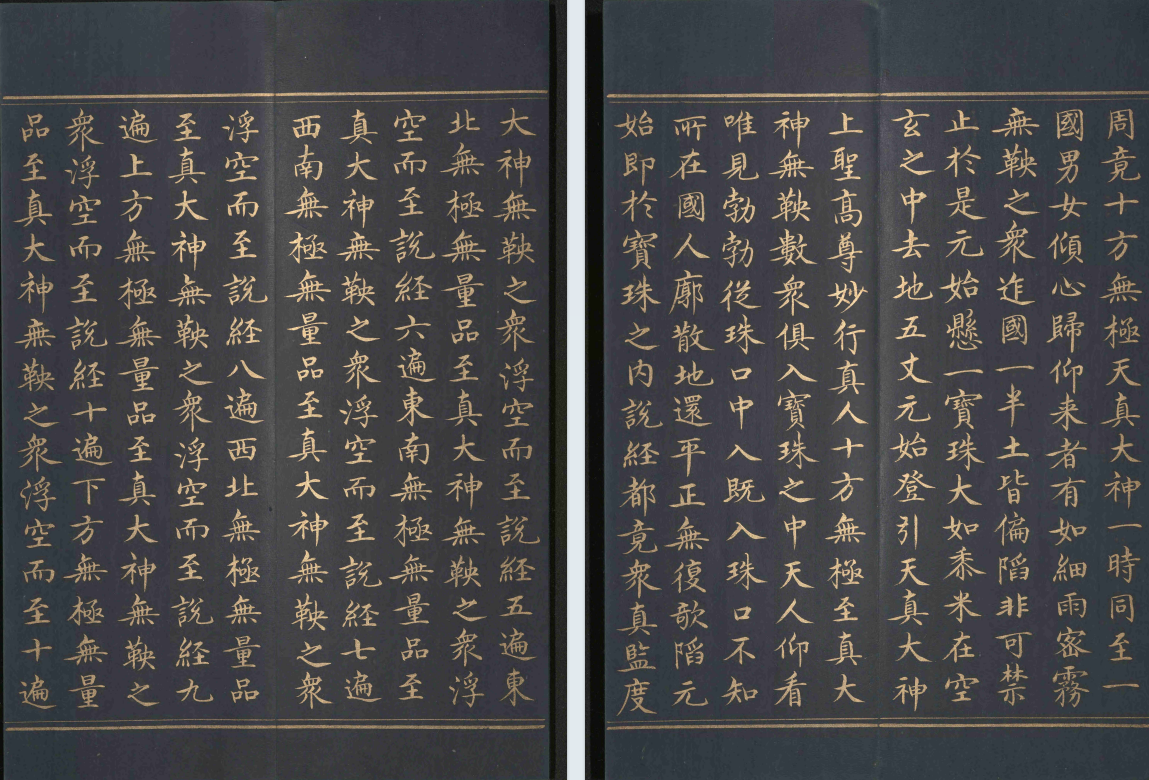 大神無鞅之衆浮空而至說経五遍東
北無極無量品至真大神無鞅之衆浮
空而至說経六遍東南無極無量品至
真大神無鞅之衆浮空而至說経七遍
西南無極無量品至真大神無鞅之衆
浮空而至說経八遍西北無極無量品
至真大神無鞅之衆浮空而至說経九
遍上方無極無量品至真大神無鞅之
衆浮空而至說経十遍下方無極無量
品至真大神無鞅之衆浮空而至十遍
周竟十方無極天真大神一時同至一
國男女傾心歸仰来者有如細雨密霧
無鞅之衆迮國一半土皆偏陷非可禁
止於是元始懸一寶珠大如黍米在空
玄之中去地五丈元始登引天真大神
上聖髙尊妙行真人十方無極至真大
神無鞅數衆俱入寶珠之中天人仰看
唯見勃勃從珠口中入既入珠口不知
所在國人廓散地還平正無復欹陷元
始即於寶珠之内說経都竟衆真監度